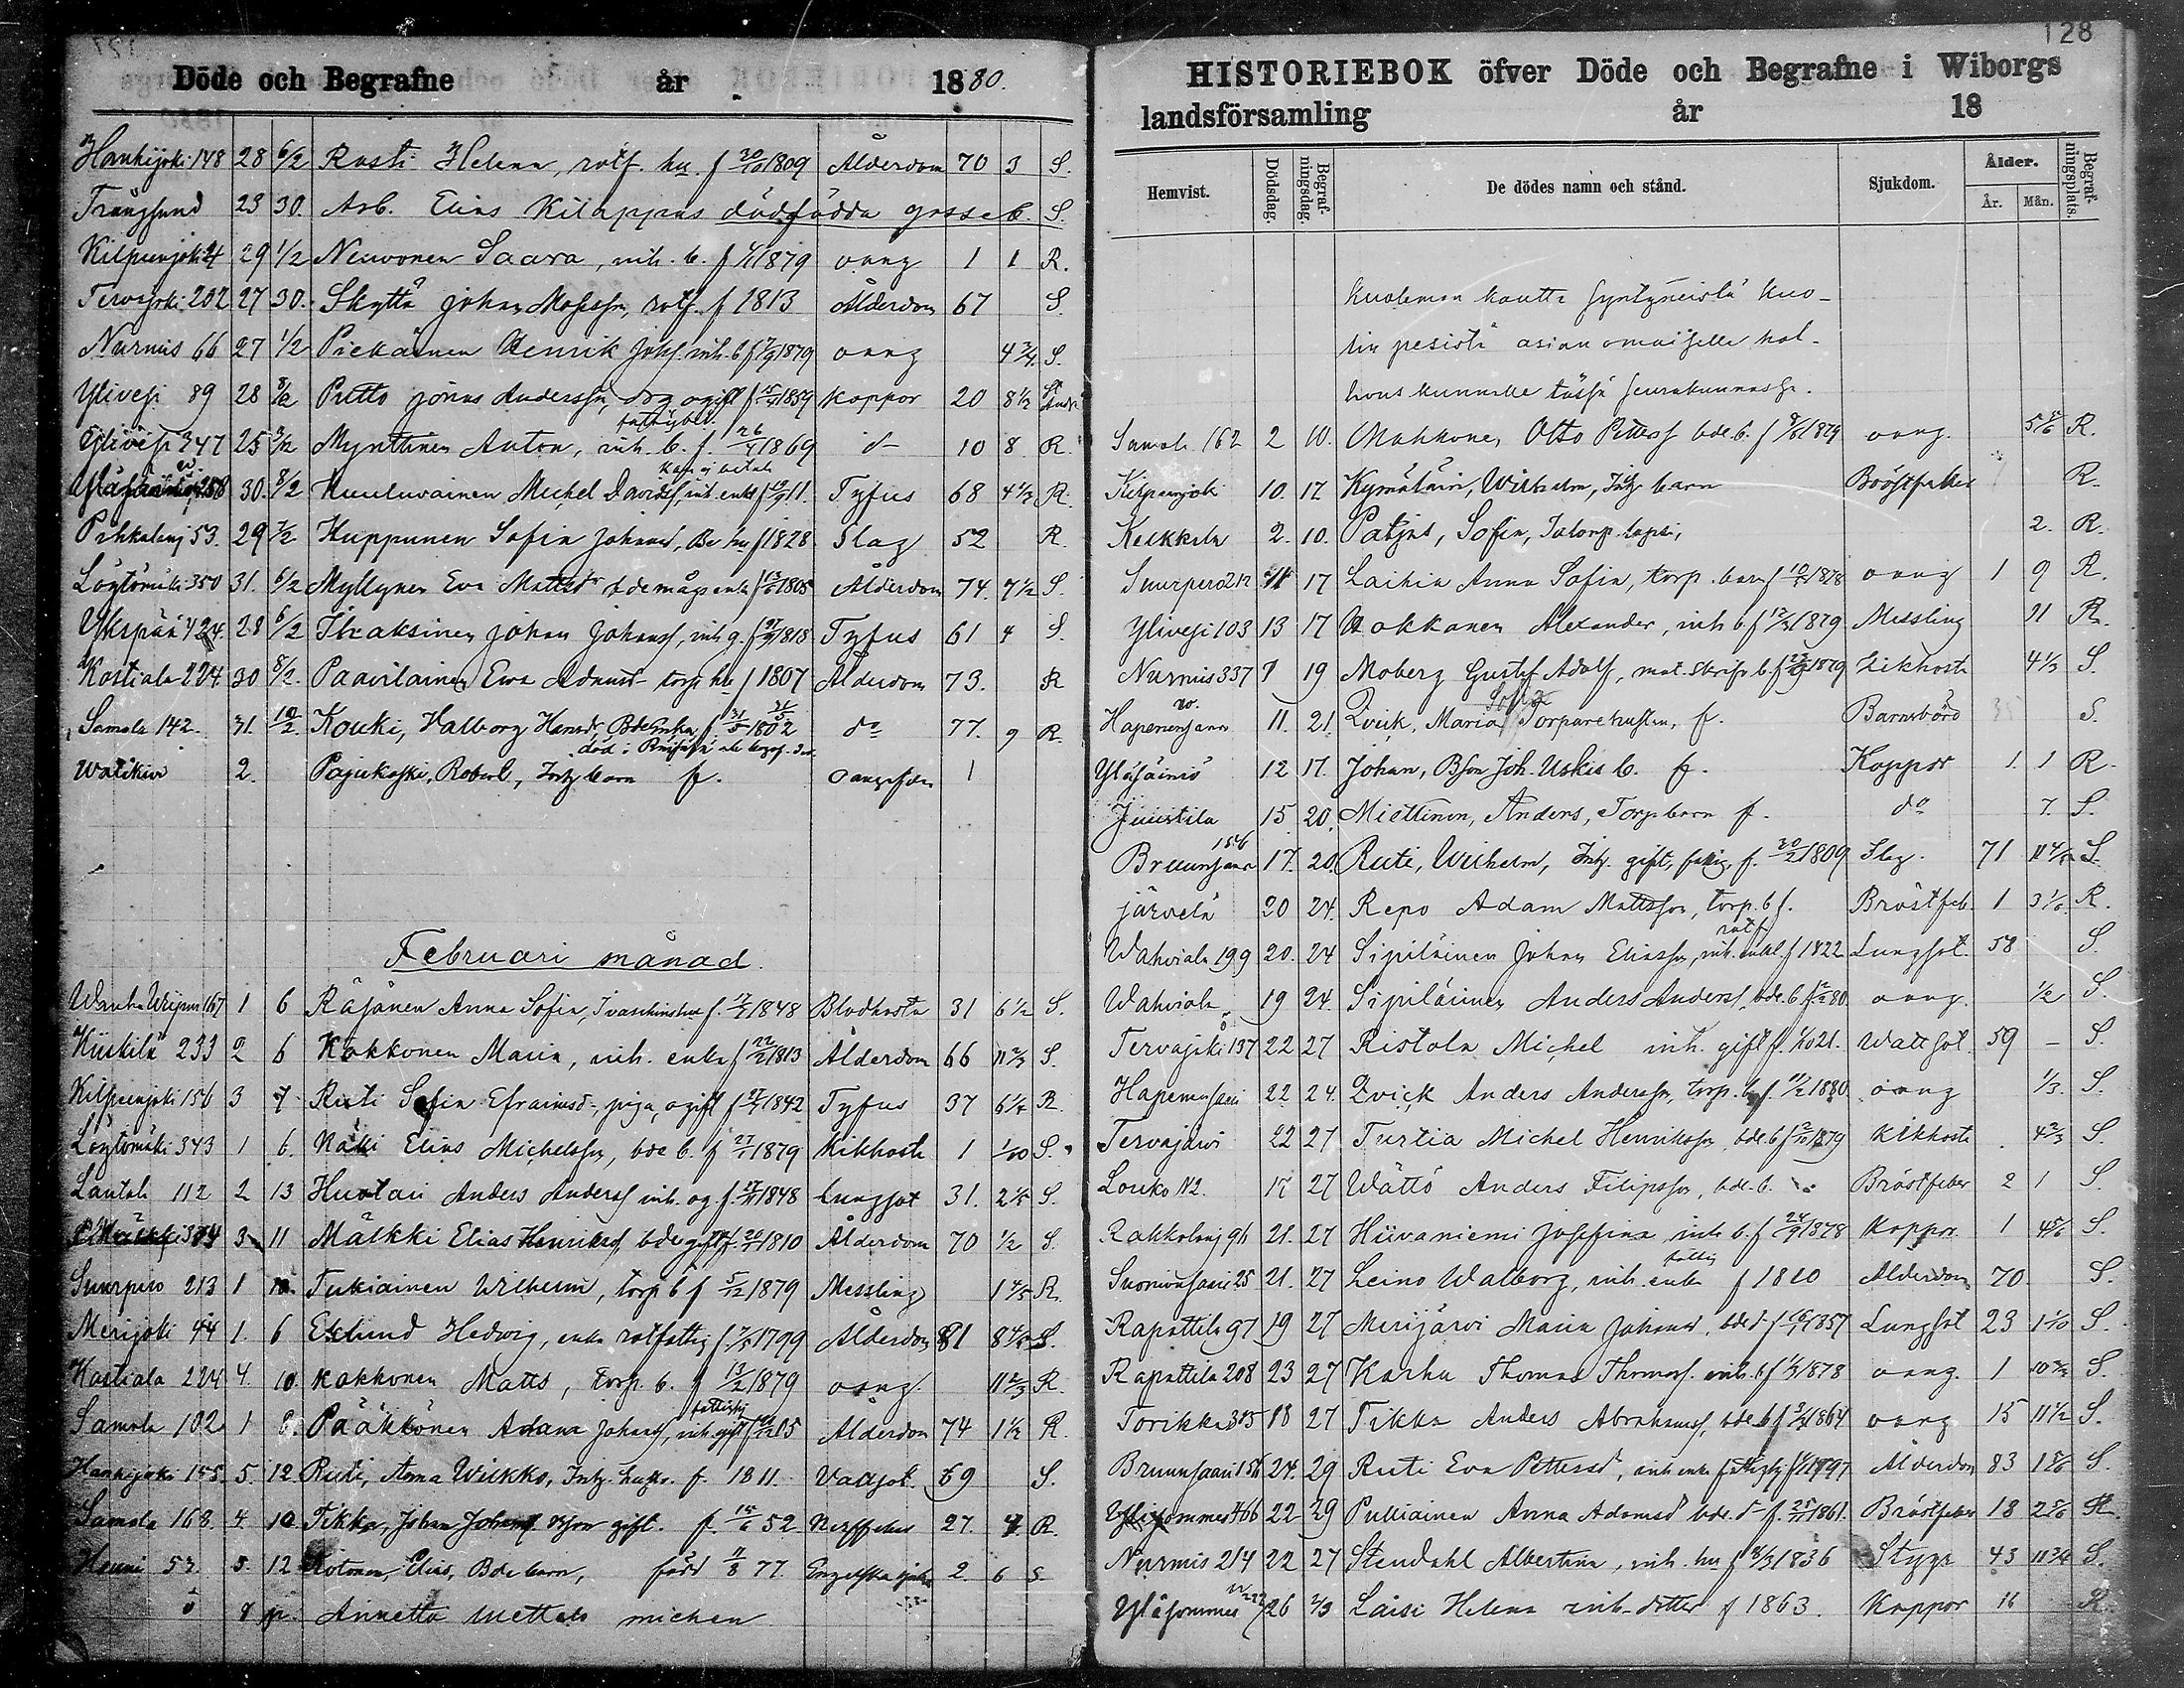 Döde och Begrafne år 1880.
Hankijoki 148 28 6/2 Rasti Helena, rotf. hu f 20/10 1809 Ålderdom 70 3 S.
Trångsund 23 30. Arb. Elias Kilappas dödfödda gosseb. S.
Kilpeenjoki 24 29 1/2 Neuvonen Saara, inh. b. f 1/1 1879 oang 1 1 R.
Tervajoki 202 27 30. Skyttä Johan Matsson, rotf. f 1813 Ålderdom 67 S.
Nurmis 66 27 1/2 Piekäinen Henrik Johss. inh. b f 7/9 1879 oang 4 3/4 S.
Ylivesi 89 28 8/2 Putto Jonas Andersson, drg ogift f 15/5 1859 koppor 20 8 1/2
fattighj.
Ylivesi 347 25 2/2 Mynttinen Anton, inh. b. f. 26/4 1869 d- 10 8 R.
258 30. 8/2 Kuuluvainen Michel Davidss, inh. enkl f 11. Tyfus 68 4 1/2 R.
Pihkalanj 53. 29 7/2 Huppunen Sofia Johansd, Be hu f 1828 Slag 52 R.
Löytömäki 350 31. 6/2 Myllynen Eva Mattsdr bdemågs enka f 13/6 1805 Ålderdom 74. 7 1/2 S.
Ykspää 424. 28 6/2 Ihaksinen Johan Johanss, inh g. f 21/9 1818 Tyfus 61 4 S.
Kostiala 224. 30 8/2. Paavilainen Eva Adamsd torp hu f 1807 Ålderdom 73. R
Samola 142. 31. 10/2. Kouki, Valborg Hansd, Bde enka f. 31/5 1802 do 77. 9 R.
Watikivi 2. Pajukoski, Robert, Inhy barn f. oangifven 1
Februari månad.
Wanha Wiipuri 167 1 6 Räsänen Anna Sofia, Ivaschins hu f. 17/7 1848 Blodhosta 31 6 1/2 S.
Kiiskilä 233 2 6 Kokkonen Maria, inh. enka f 22/2 1813 Ålderdom 66 11 2/3 S.
Kilpeenjoki 156 3 7 Ruti Sofia Efraimsd., piga, ogift f 27/7 1842 Tyfus 37 6 1/5 R.
Löytömäki 343 1 6. Näki Elias Michelsson, bde b. f 27/1 1879 Kikhosta 1 1/10 S.
Lautala 112 2 13 Huotari Anders Anderss inh. og. f. 27/11 1848 Lungsot 31. 2 1/5 S.
374 3 11 Mälkki Elias Henrikss, bde gift f. 20/1 1810 Ålderdom 70 1/2 S.
Suurpero 213 1 10. Tukiainen Wilhelm, torp b f 5/12 1879 Messling 1 4/5 R.
Merijoki 44 1. 6 Eklund Hedvig, enka rotfattig f 7/5 1799 Ålderdom 81 8 4/5 S.
Kostiala 224 4. 10. Kokkonen Matts, torp. b. f 13/2 1879 oang. 11 2/3 R.
Samola 102 1 8. Pääkkönen Adam Johanss, inh. gift f 05 Ålderdom 74 1 1/2 R.
Hankijoki 155 5. 12 Ruti, Anna Wilkko, Inhy. hustr. f. 1811. Vattsot. 69 S.
Samola 168. 4. 10 Tikka, Johan Johanss Bson gift. f. 14/6 52 Nerffeber 27. 7 R.
Houni 53. 5. 12 Kotonen, Elias, Bde barn, född 11/8 77. Engelska sjukan 2. 6 S.
Annetta mettels michen
128
HISTORIEBOK öfver Döde och Begrafne i Wiborgs
landsförsamling år 18
Hemvist. Dödsdag. Begrafningsdag. De dödes namn och stånd. Sjukdom. Ålder. År. Mån. Begrafningsplats.
Kuoleman kautta syntyneistä kuo-
lin pesistä asian omaisille hol-
hous kunnalle tässä seurakunnassa.
Samola 162 2 10. Mahkonen Otto Petterss bde. b. f 9/8 1879 oang. 5 5/6 R.
Kilpeenjoki 10. 17 Kymäläin, Wilhelm, Inhy barn Bröstfeber R.
Keikkala 2. 10. Patjas, Sofia, Talonp. lapsi, 2. R.
Suurpero 212 11 17 Laihia Anna Sofia, torp. barn f 10/5 1878 oang 1 9 R.
Ylivesi 103 13 17 Hokkanen Alexander, inh b. f 17/3 1879 Messling 11 R.
Nurmis 337 7 19 Moberg Gustaf Adolf, mat. skrifv. b. f 1879 Kikhosta 4 1/3 S.
Hapenensaari 11. 21. Qvick, Maria Sofia Torpare hustru, f. Barnsbörd S.
Yläsäiniö 12 17. Johan, Bson Joh. Uskis b. f. Koppor 1. 1 R.
Juustila 15 20. Miettinen, Anders, Torp barn f. do 7. S.
Bruunsaari 156 17. 20. Ruti, Wilhelm, Inhy. gift, fattig, f. 20/2 1809 Slag. 71 11 S.
Järvelä 20 24. Repo Adam Mattsson, torp. b f. Bröstfeb. 1 3 1/6 R.
rotf
Wahviala 199 20. 24 Sipiläinen Johan Eliasson, inh. enkl. f 1822 Lungsot. 58 S.
Wahviala 19 24. Sipiläinen Anders Anderss. bde. b f 80 oang. 1/2 S.
Tervajoki 137 22 27 Ristola Michel inh. gift f. 1/10 21. Wattsot. 59 – S.
Hapenensaari 22 24. Qvick Anders Andersson, torp. b. f. 11/2 1880. oang 1/3. S.
Tervajärvi 22 27 Turtia Michel Henriksson, bde b f 2/10 1879 Kikhosta 4 2/3 S.
Louko 112. 17 27 Wättö Anders Filipsson, bde. b. Bröstfeber 2 1 S.
Rakkolanj 96 21. 27 Hiivaniemi Josefina inh b. f 24/9 1878 Koppor. 1 4 5/6 S.
fattig
Suonionsaari 25 21. 27 Leino Walborg, inh. enka f 1810 Ålderdom 70. S.
Rapattila 97 19 27 Merijärvi Maria Johansd, bde d- f 1857 Lungsot 23 1 1/10 S.
Rapattila 208 23 27 Karhu Thomas Thomass. inh. b f 1878 oang. 1 S.
Torikka 315 18 27 Tikka Anders Abrahamss, bde. b f 3/3 1864 oang 15 11 1/2 S.
Bruunsaari 156 24. 29 Ruti Eva Pettersd, inh enka fattighj f 1/1 1797 Ålderdom 83 1 5/6 S.
Ylisommee 466 22 29 Pukiainen Anna Adamsd bde. d- f. 25/11 1861. Bröstfeber 18 2 5/6 R.
Nurmis 214 22 27 Stendahl Albertina, inh. hu f 8/3 1836 Stygn 43 11 3/4 S.
Yläsommee 222 26 7/3 Laisi Helena inh-dotter f 1863. Koppor 16 R.